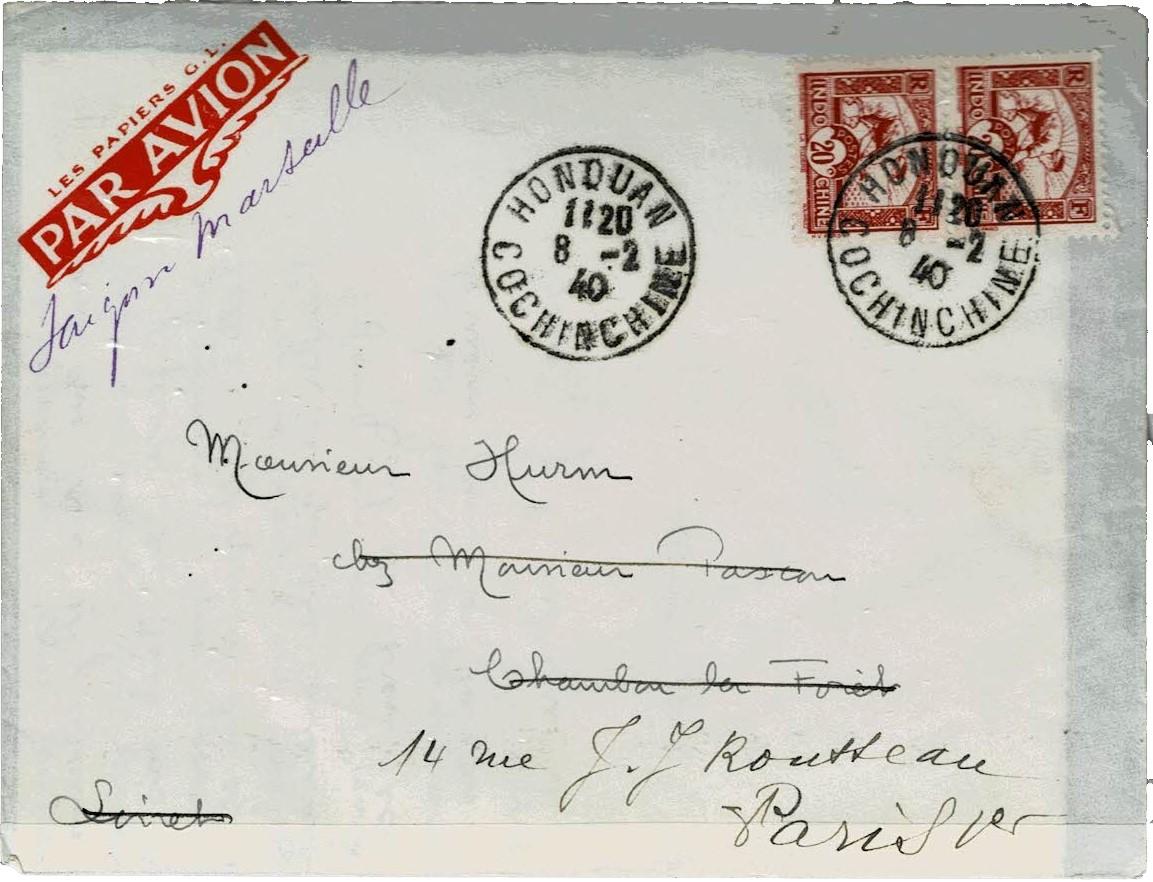 LES PAPIERS G.L.
PAR AVION
Saigon Marseille
INDO CHINE
R F
POSTES
20
INDO
R F
HONQUAN
1120
8 -2
40
COCHINCHINE
HONQUAN
1120
8 -2
40
COCHINCHINE
Monsieur Hurm
chez Monsieur Pascou
Chambon la Forêt
14 rue J. J Rousseau
Paris 1er
Loiret